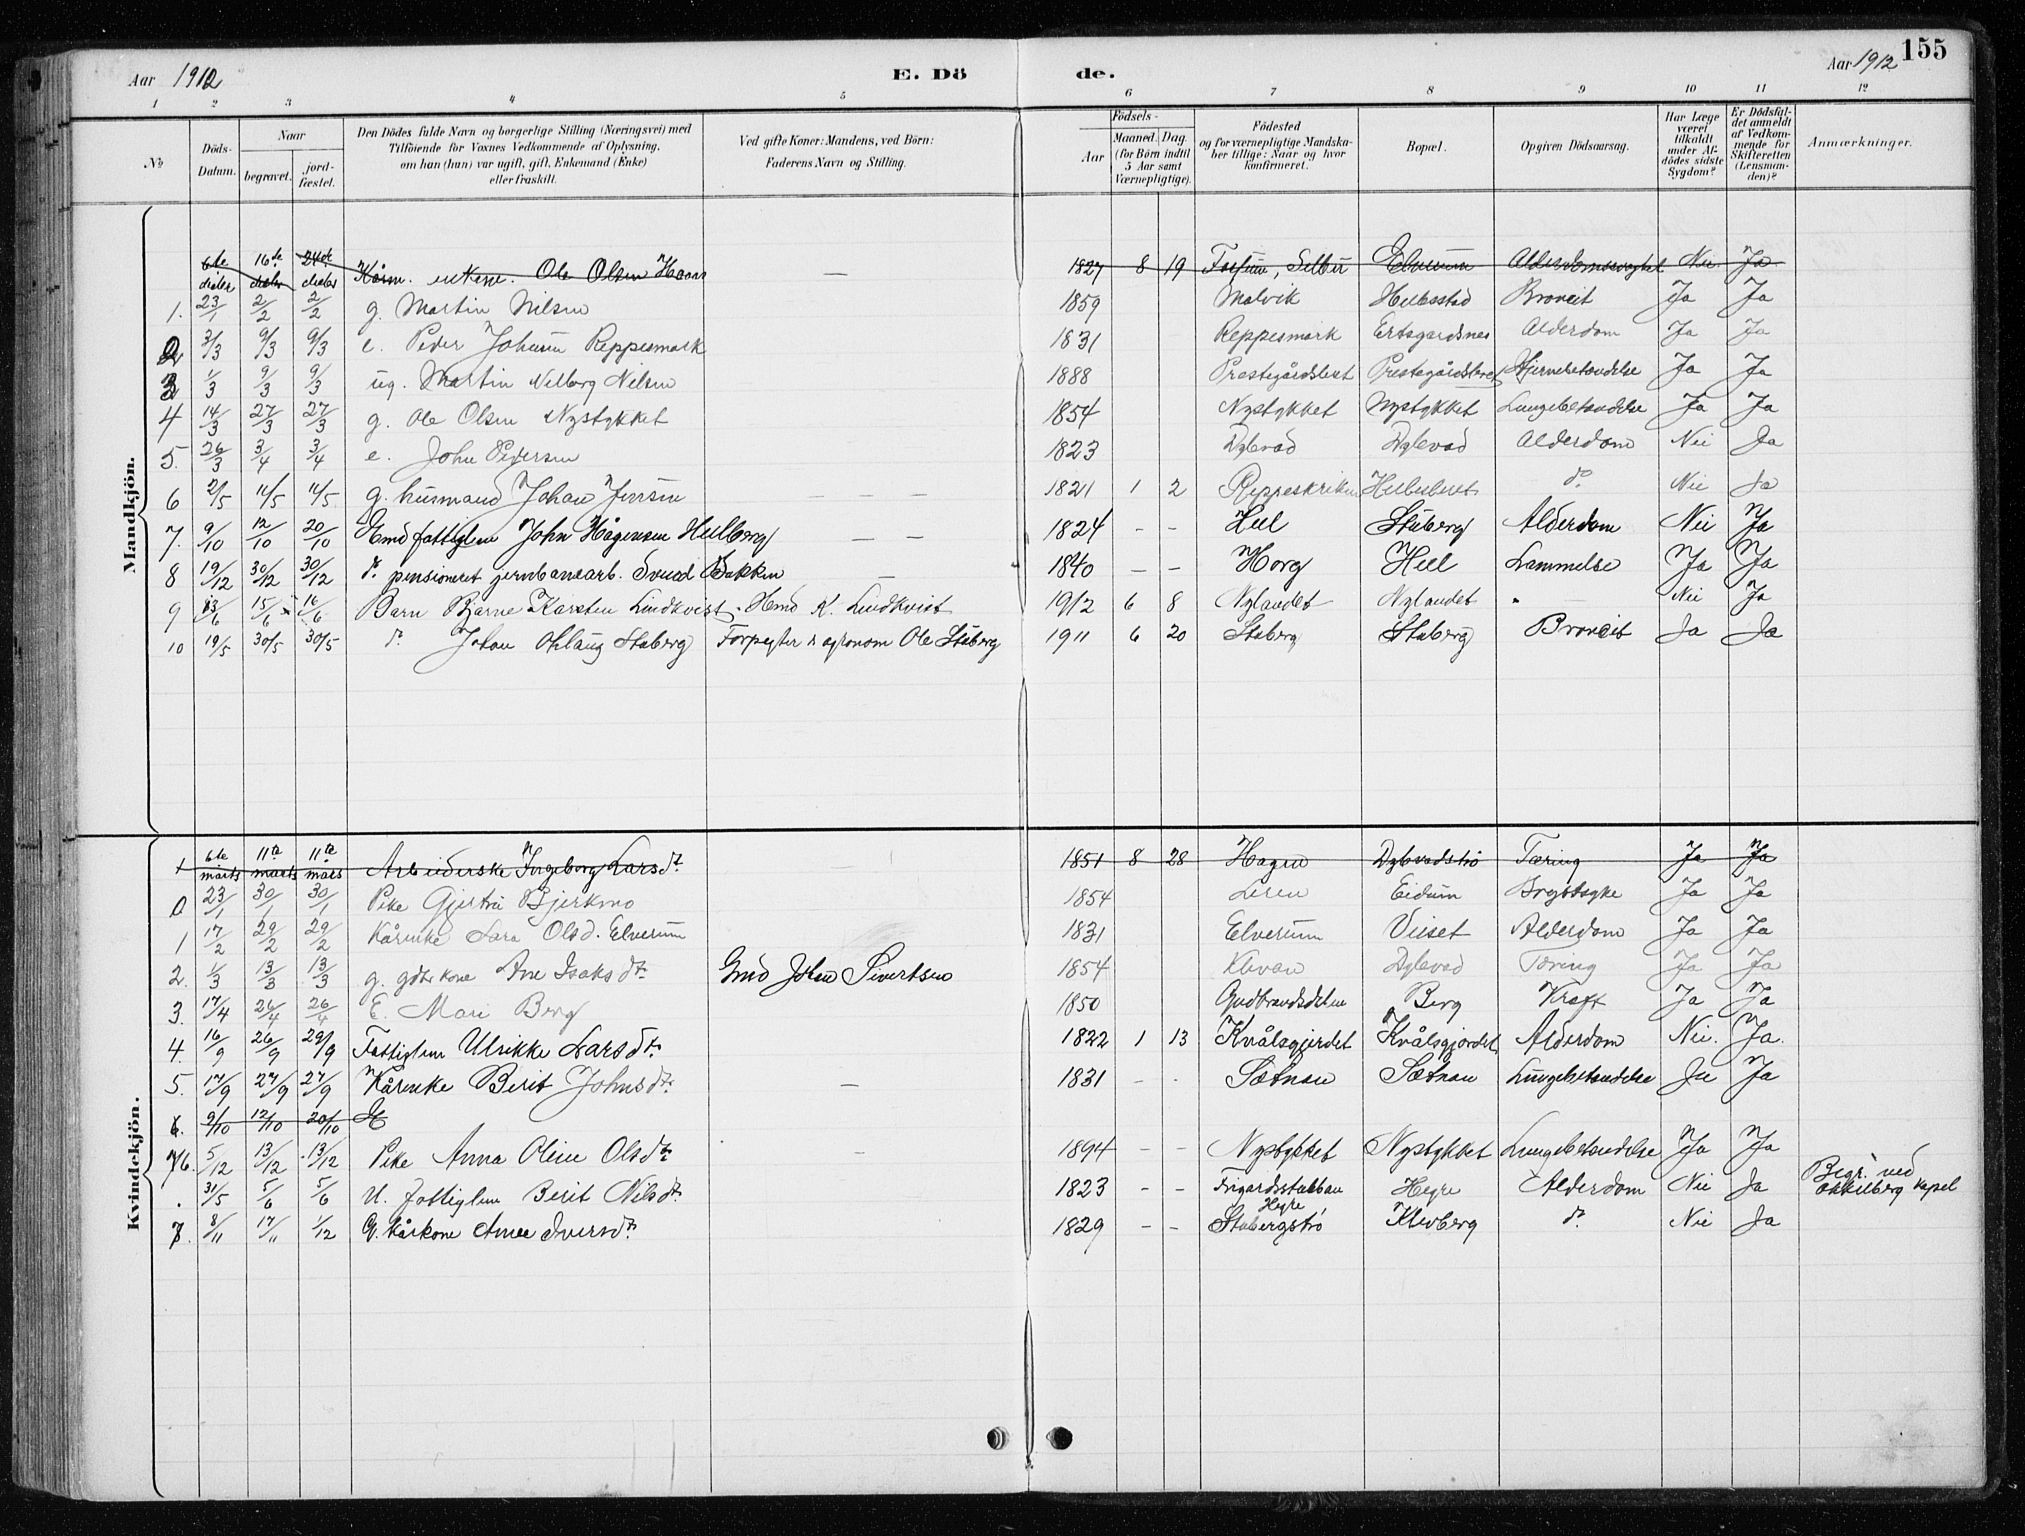 Aar 1912
E. Dö
de.
Aar 1912
155
1 2 3 4 5 6 7 8 9 10 11 12
No
Döds-Datum.
Naar
begravet.
jord-fæstet.
Den Dödes fulde Navn og borgerlige Stilling (Næringsvei) med
Tilföiende for Voxnes Vedkommende af Oplysning,
om han (hun) var ugift, gift, Enkemand (Enke)
eller fraskilt.
Ved gifte Koner: Mandens, ved Börn:
Faderens Navn og Stilling.
Födsels-
Aar
Maaned. Dag.
(for Börn indtil
5 Aar samt
Værnepligtige).
Födested
og for værnepligtige Mandska-
ber tillige: Naar og hvor
konfirmeret.
Bopæl.
Opgiven Dödsaarsag.
Har Læge
været
tilkaldt
under Af-
dödes sidste
Sygdom?
Er Dödsfal-
det anmeldt
af Vedkom-
mende for
Skifteretten
(Lensman-
den)?
Anmærkninger.
Mandkjön.
6te 16de 24de Ole Olsen — 1827 8 19 Selbu Elverum Nei Ja
1. 23/1 2/2 2/2 g. Martin Nilsen 1859 Malvik Helbostad Broncit Ja Ja
2 3/3 9/3 9/3 e. Peder Johnsen Reppesmark 1831 Reppesmark Ertsgardsnes Alderdom Ja Ja
3 1/3 9/3 9/3 ug. Martin Nelborg Nilsen 1888 Hjernebetændelse Ja Ja
4 14/3 27/3 27/3 g. Ole Olsen Nystykket 1854 Nystykket Nystykket Lungebetændelse Ja Ja
5. 26/3 3/4 3/4 e. John Pedersen 1823 Dylevad Dylevad Alderdom Nei Ja
6 2/5 11/5 11/5 g. husmand Johan Jensen — — — 1821 1 2 do Nei Ja
7. 9/10 12/10 20/10 Emd fattiglem John Hågensen Hellberg — — 1824 - - Hell Stuberg Alderdom Nei Ja
8 19/12 30/12 30/12 do pensioneret jernbanearb. Svend Bakken — 1840 - - Horg Hell Lammelse Ja Ja
9 13/6 15/6 16/6 Barn Bjarne Karsten Lindkvist. Hmd K. Lindkvist 1912 6 8 Nylandet Nylandet Nei Ja
10 19/5 30/5 30/5 do Johan Oflaug Staberg Forpagter & agronom Ole Staberg 1911 6 20 Staberg Staberg Broncit Ja Ja
Kvindekjön.
6te marts 11te marts 11te mars Arbeiderske Ingeborg Larsdtr 1851 8 28 Hagen Dylevadstrø Tæring Ja Ja
23/1 30/1 30/1 Pike Gjertru Bjerkmo 1854 Leren Eidum Brystsyke Ja Ja
1 17/2 29/2 29/2 Kårenke Sara Olsd. Elverum 1831 Elverum Viset Alderdom Ja Ja
2. 1/3 13/3 13/3 g. gdbr kone Ane Isaksdtr Gmd Johan Sivertsen 1854 Klevan Dylevad Tæring Ja Ja
3. 17/4 26/4 26/4 E. Mari Berg 1850 Gudbrandsdalen Berg Kræft Ja Ja
4. 16/9 26/9 29/9 Fattiglem Ulrikke Larsdtr. 1822 1 13 Kvålsgjerdet Kvålsgjerdet Alderdom Nei. Ja.
5. 17/9 27/9 27/9 Kårenke Berit Johnsdtr. — 1831 - - Sætnan Sætnan Lungebetændelse Ja Ja
6. 9/10 12/10 20/10
6. 5/12 13/12 13/12 Pike Anna Oline Olsdtr — 1894 - - Nystykket Nystykket Lungebetændelse Ja Ja
. 31/5 5/6 5/6 U. fattiglem Berit Nilsdtr. 1823 - - Hegre Hegre Alderdom Nei Ja Begr. ved Okkelberg kapel
7. 8/11 17/11 1/12 G. kårkone Anne Iversdtr. 1829 - - Stabergstrø Klevberg do Nei Ja